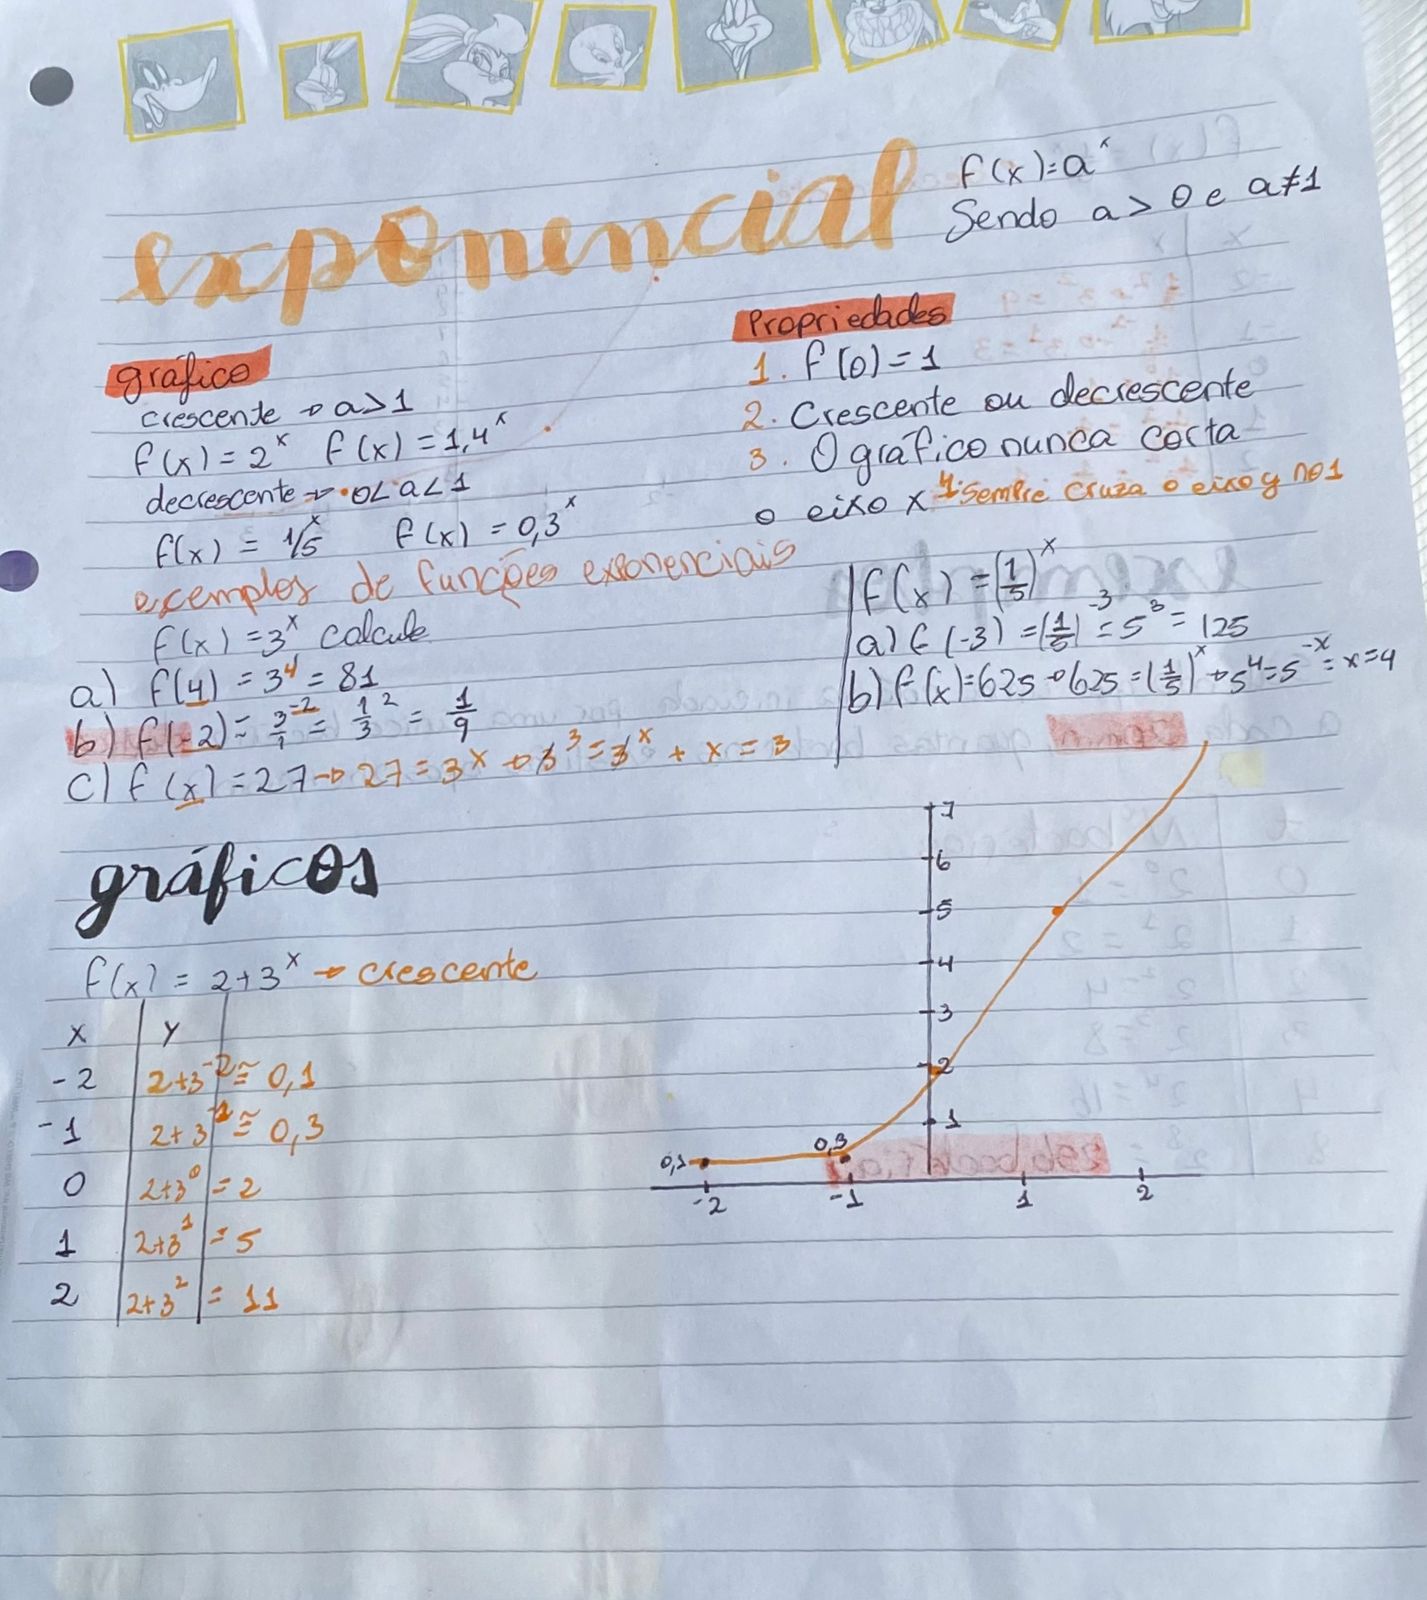 exponencial
f(x)=aˣ
Sendo a > 0 e a≠1
gráfico
crescente → a>1
f(x) = 2ˣ f(x) = 1,4ˣ
decrescente → 0<a<1
f(x) = 1/5ˣ f(x) = 0,3ˣ
Propriedades
1. f(0) = 1
2. Crescente ou decrescente
3. O gráfico nunca corta
o eixo x 4. Sempre cruza o eixo y no 1
exemplos de funções exponenciais
f(x) = 3ˣ, calcule
a) f(4) = 3⁴ = 81
b) f(-2) = 3⁻²/1 = 1/3² = 1/9
c) f(x) = 27 → 27 = 3ˣ → 3³ = 3ˣ + x = 3
f(x) = (1/5)ˣ
a) f(-3) = (1/5)⁻³ = 5³ = 125
b) f(x)=625 → 625 = (1/5)ˣ → 5⁴ = 5⁻ˣ = x=4
gráficos
f(x) = 2+3ˣ → crescente
x y
-2 2+3⁻² ≅ 0,1
-1 2+3⁻¹ ≅ 0,3
0 2+3⁰ = 2
1 2+3¹ = 5
2 2+3² = 11
7
6
5
4
3
2
1
0,1 0,3
-2 -1 1 2